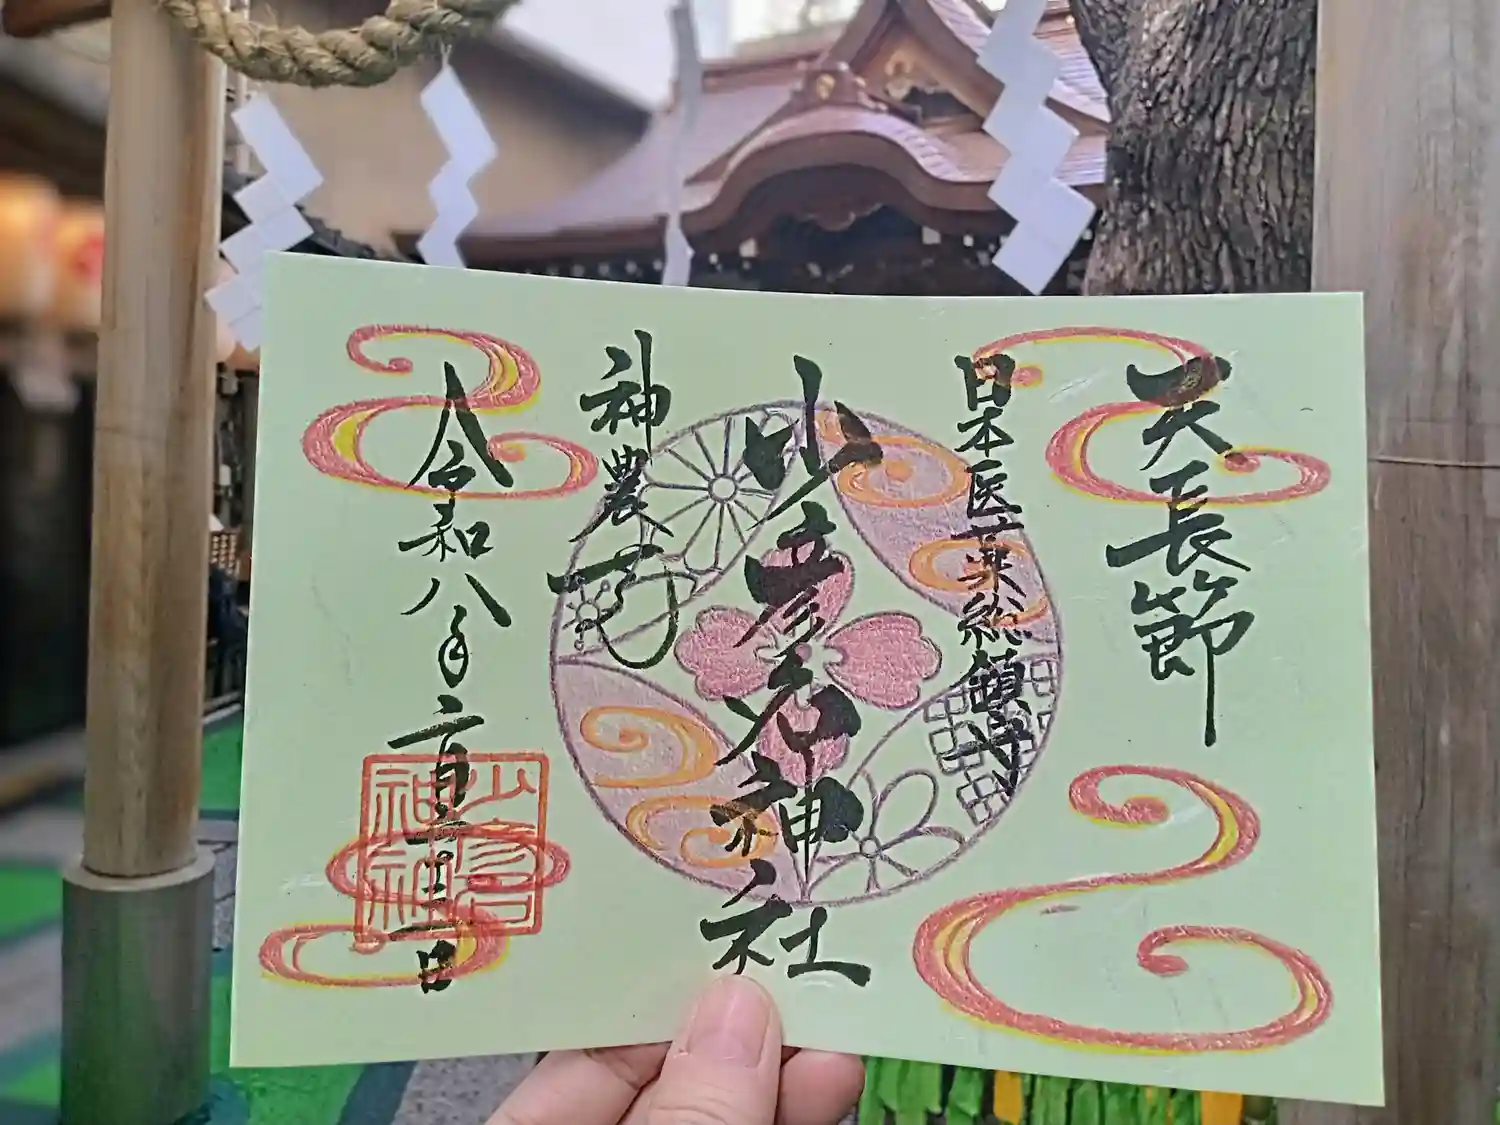 天長節
日本医薬総鎮守
少彦名神社
神農さん
令和八年二月二十三日
少彦名
神社